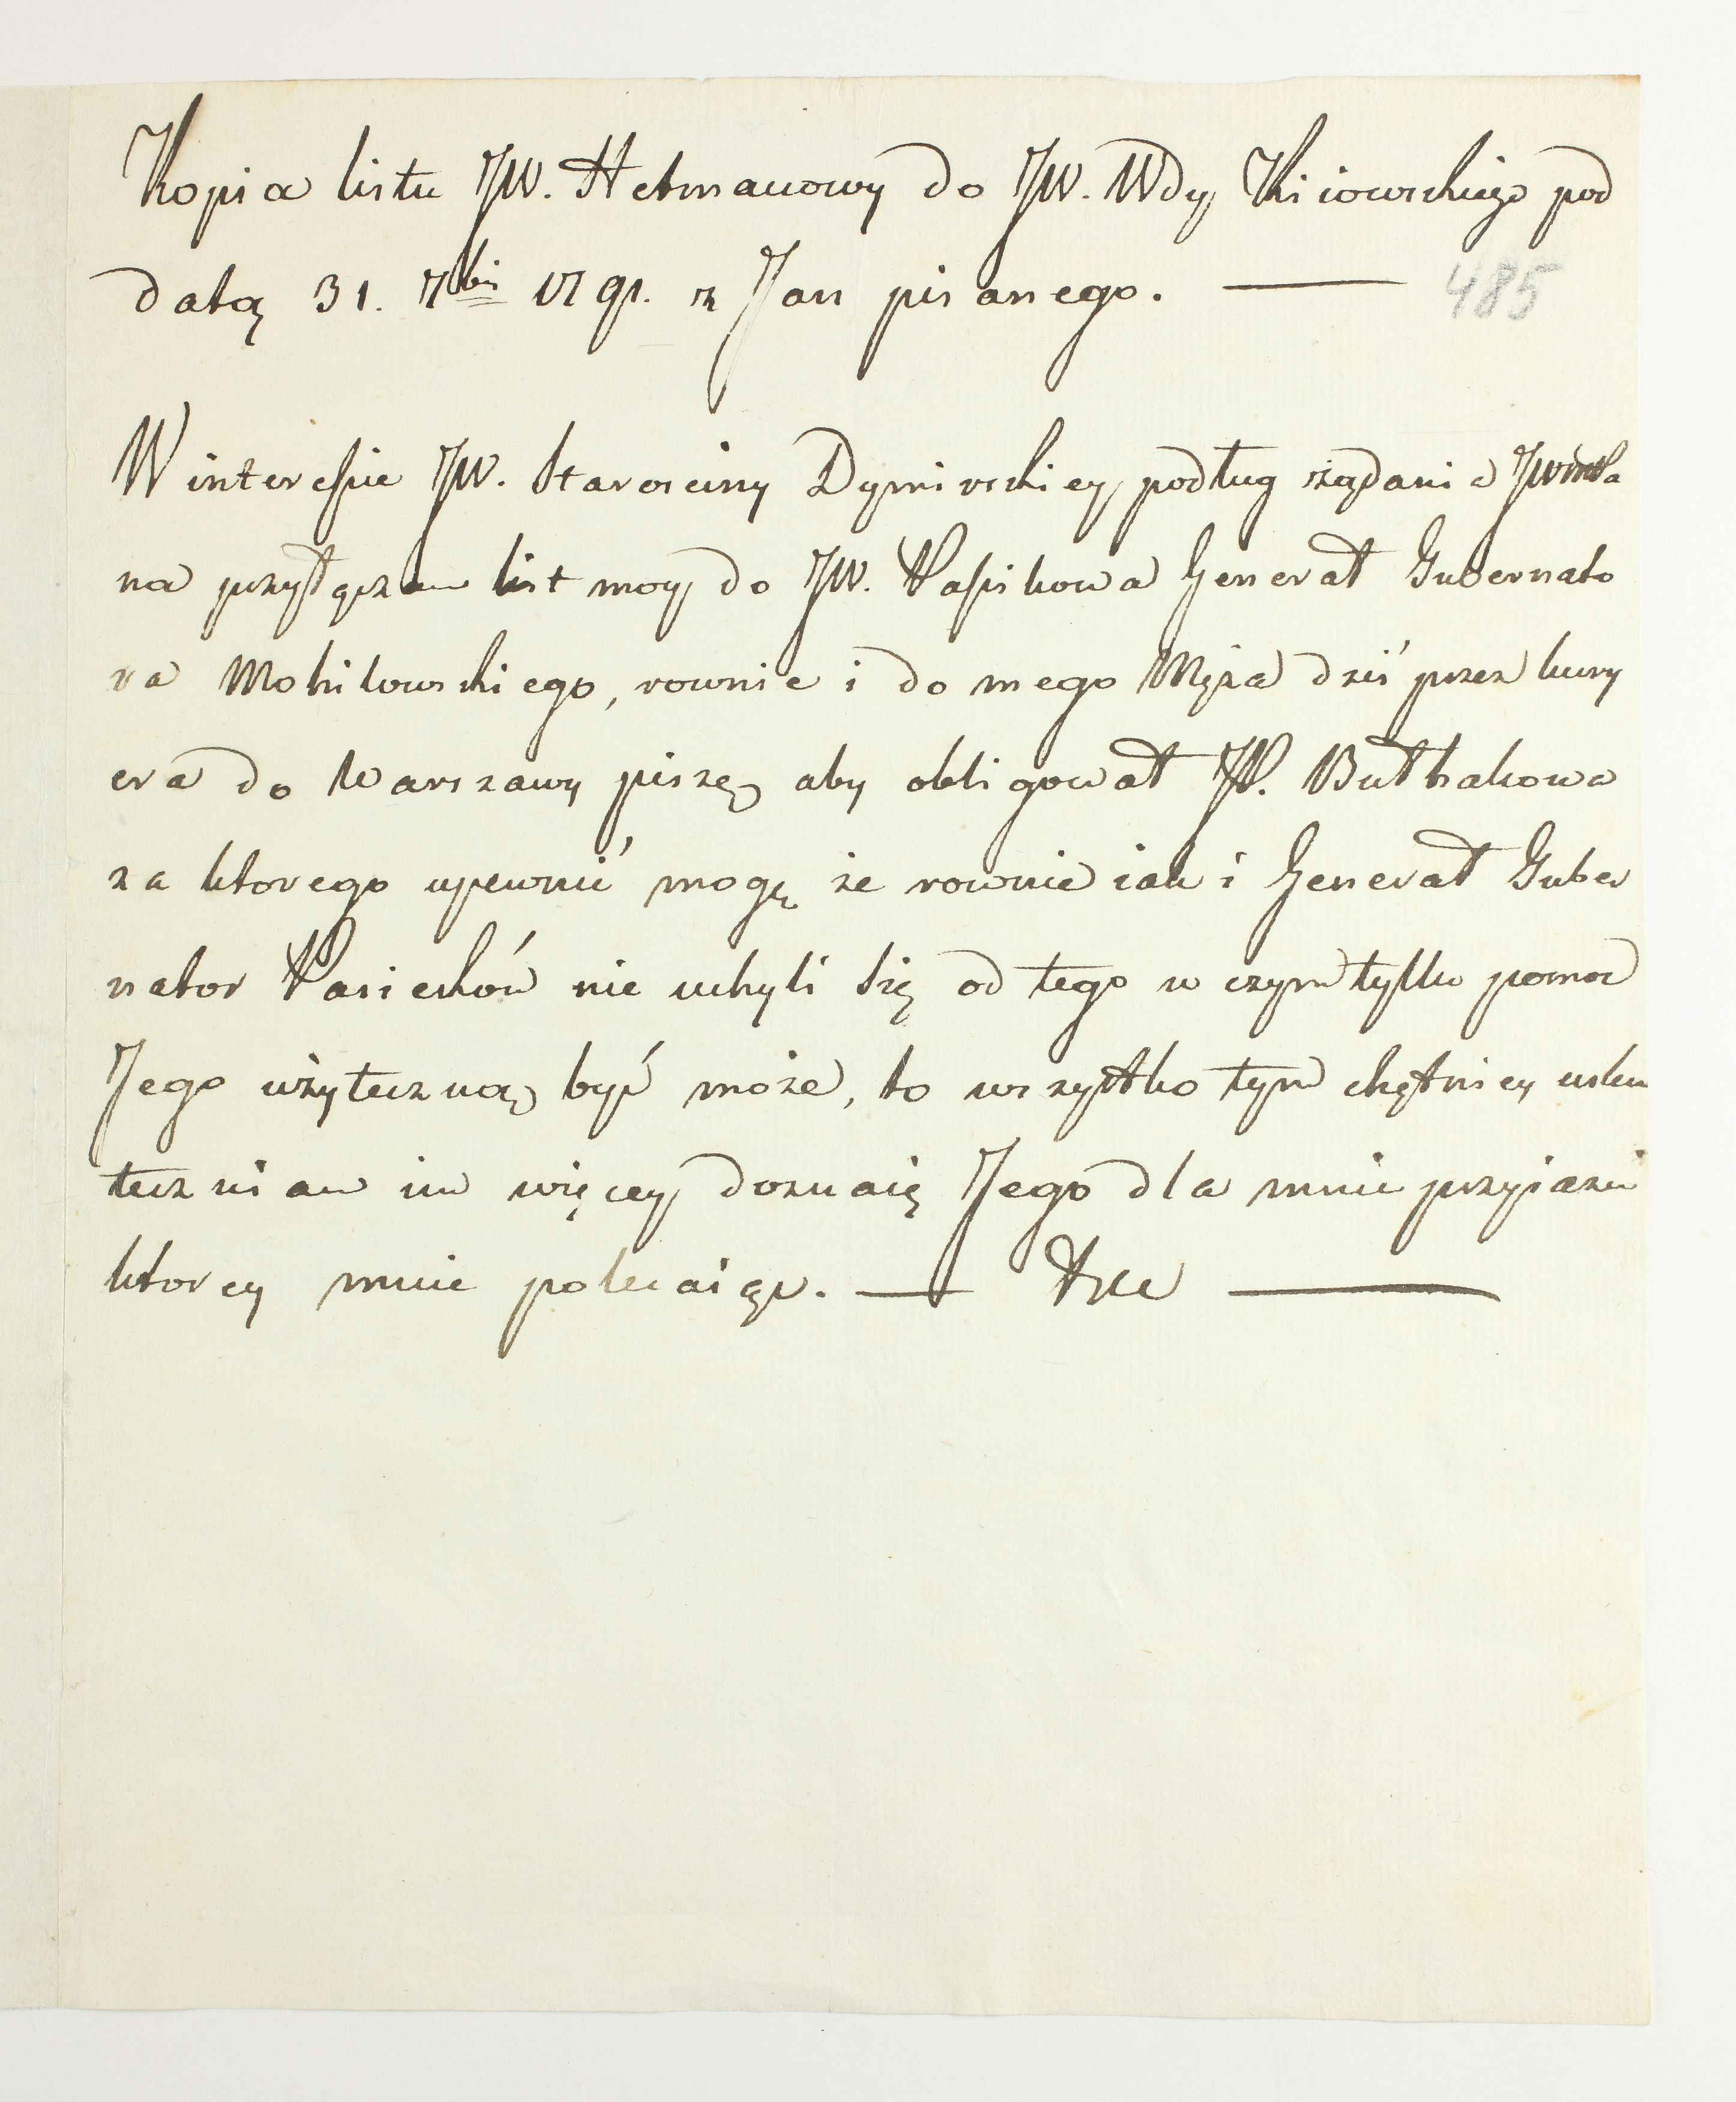 Kopia listu JW. Hetmanowy do JW. Wdy Kiiowskiego pod
datą 31. 7bris 1791. z Jass pisanego. —
485
W interessie JW. Starosciny Dymirskiey podług rządania
na przyłączam list moy do JW. Passikowa Generał Gubernato
ra Mohilowskiego, rownie i do mego Męża dziś przez kury
era do Warszawy piszę aby obligował JW. Bułhakowa
za ktorego upewnić mogę że rownie iak i Generał Guber
nator Passiekow nie uchyli się od tego w czym tylko pomoc
Jego użyteczną być może, to wszystko tym chętniey usku
teczniam im więcey doznaię Jego dla mnie przyiazni
ktorey mnie polecaiąc. — &c —